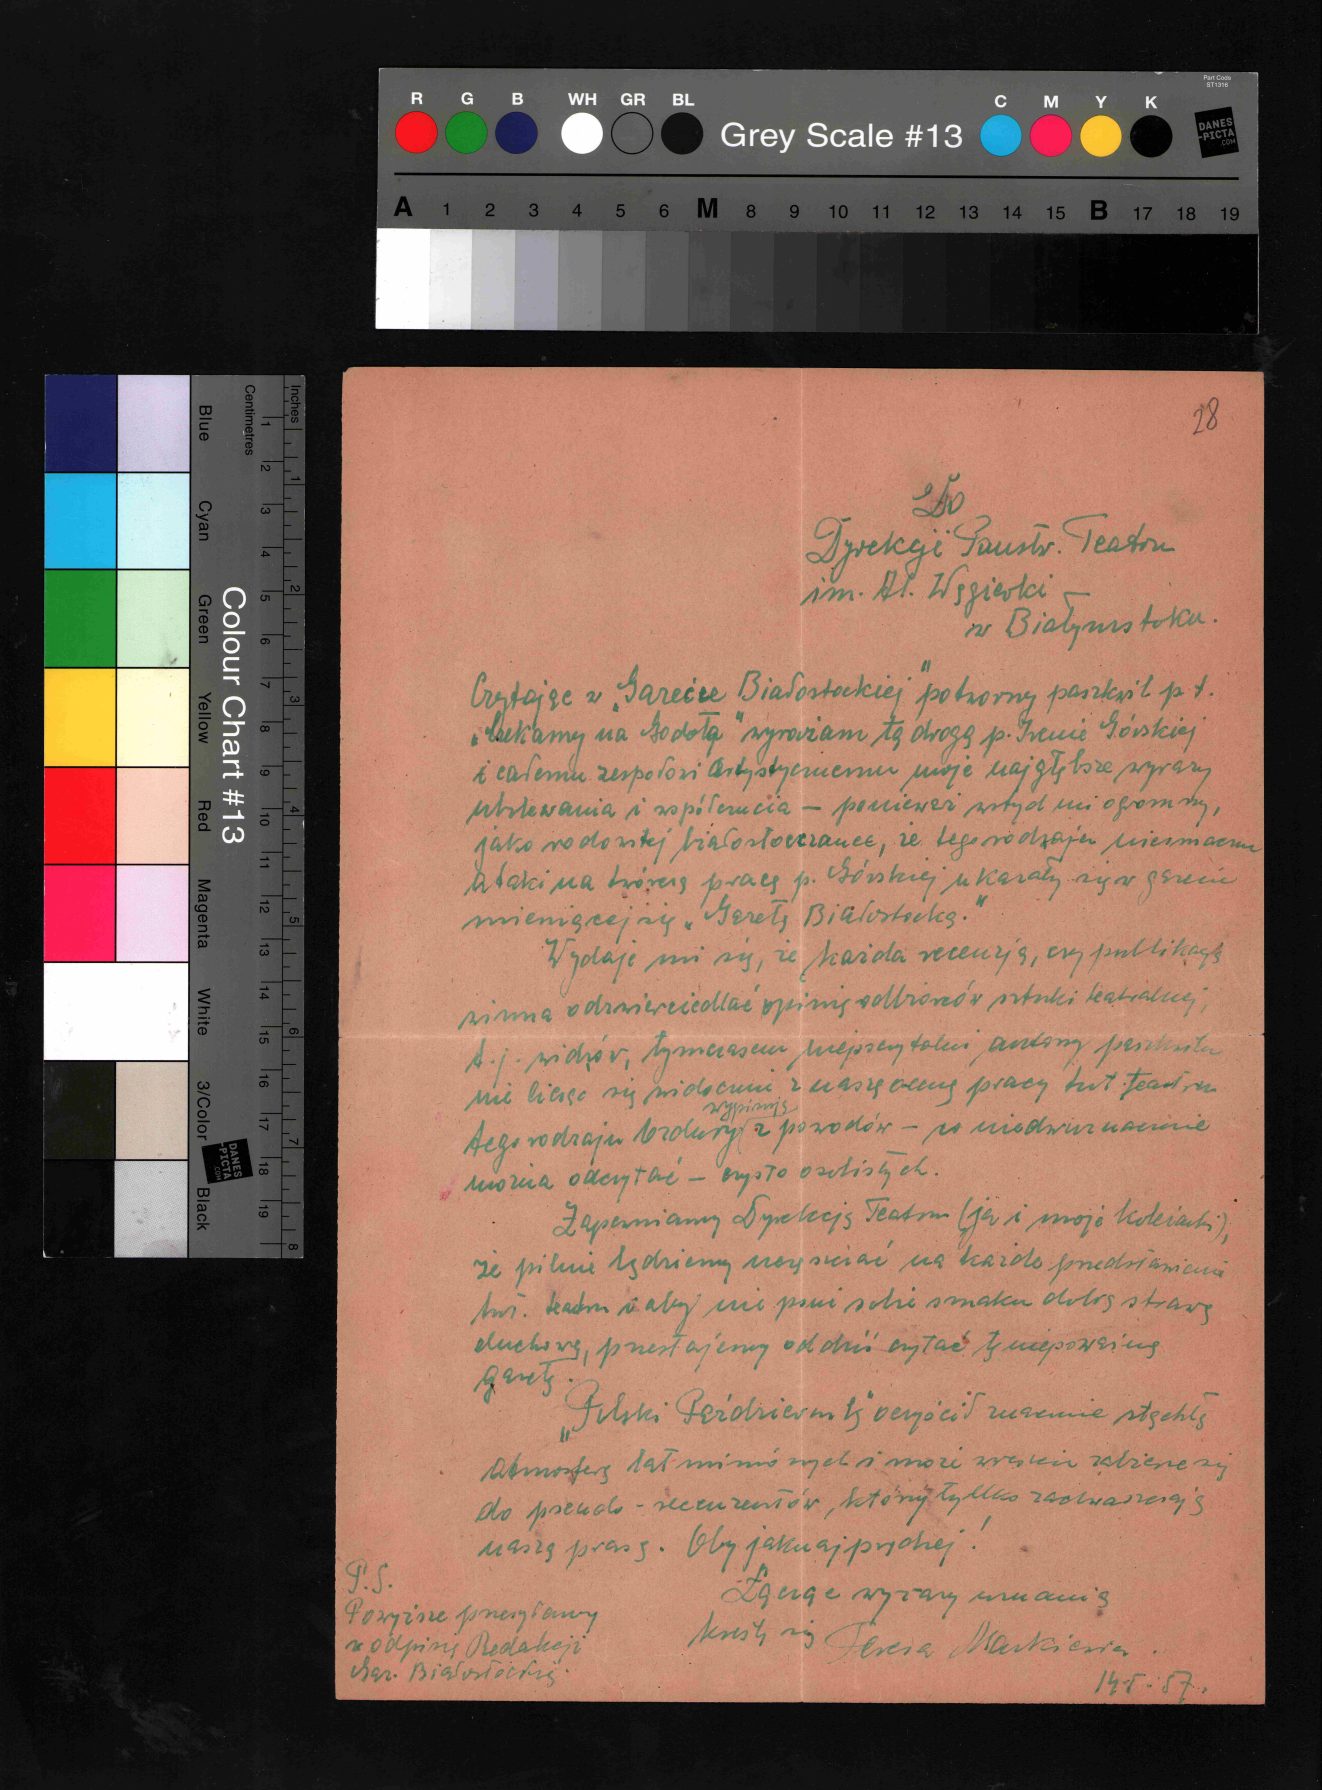 Part Code
ST1316
R G B WH GR BL Grey Scale #13 C M Y K
DANES
-PICTA
.COM
A 1 2 3 4 5 6 M 8 9 10 11 12 13 14 15 B 17 18 19
Colour Chart #13
Blue Cyan Green Yellow Red Magenta White 3/Color Black
Centimetres 1 2 3 4 5 6 7 8 9 10 11 12 13 14 15 16 17 18 19
Inches 1 2 3 4 5 6 7 8
DANES
-PICTA
.COM
28
Do
Dyrekcji Państw. Teatru
im. Al. Węgierki –
w Białymstoku.
Czytając w „Gazecie Białostockiej" potworny paszkwil p t.
„Czekamy na Godota" wyrażam tą drogą p. Irenie Górskiej
i całemu zespołowi artystycznemu moje najgłębsze wyrazy
ubolewania i współczucia – ponieważ wstyd mi ogromny,
jako rodowitej białostocczance, że tego rodzaju niesmaczne
ataki na twórczą pracę p. Górskiej ukazały się w gazecie
mieniącej się „Gazetą Białostocką."
Wydaje mi się, że każda recenzja, czy publikacja
winna odzwierciedlać opinię odbiorców sztuki teatralnej,
t. j. widzów, tymczasem niepoczytalni autorzy paszkwilu
nie licząc się widocznie z naszą oceną pracy tut. teatru
tego rodzaju bzdury wypisują z powodów – co niedwuznacznie
można odczytać – czysto osobistych.
Zapewniamy Dyrekcję Teatru (ja i moje koleżanki),
że pilnie będziemy uczęszczać na każde przedstawienie
tut. teatru i aby nie psuć sobie smaku dobrą strawą
duchową, przestajemy od dziś czytać tę niepoważną
gazetę.
„Polski Październik" oczyścił znacznie stęchłą
atmosferę lat minionych i może wreszcie zabierze się
do pseudo-recenzentów, którzy tylko zachwaszczają
naszą prasę. Oby jaknajprędzej!
Łącząc wyrazy uznania
kreślę się Teresa Markiewicz.
14.I.57.
P.S.
Powyższe przesyłamy
w odpisie Redakcji
Gaz. Białostockiej.